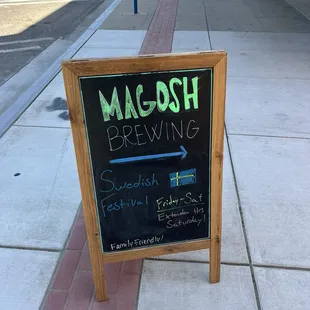 MAGOSH
BREWING
Swedish
festival
Friday-Sat
Extended Hrs
Saturday!
Family Friendly!